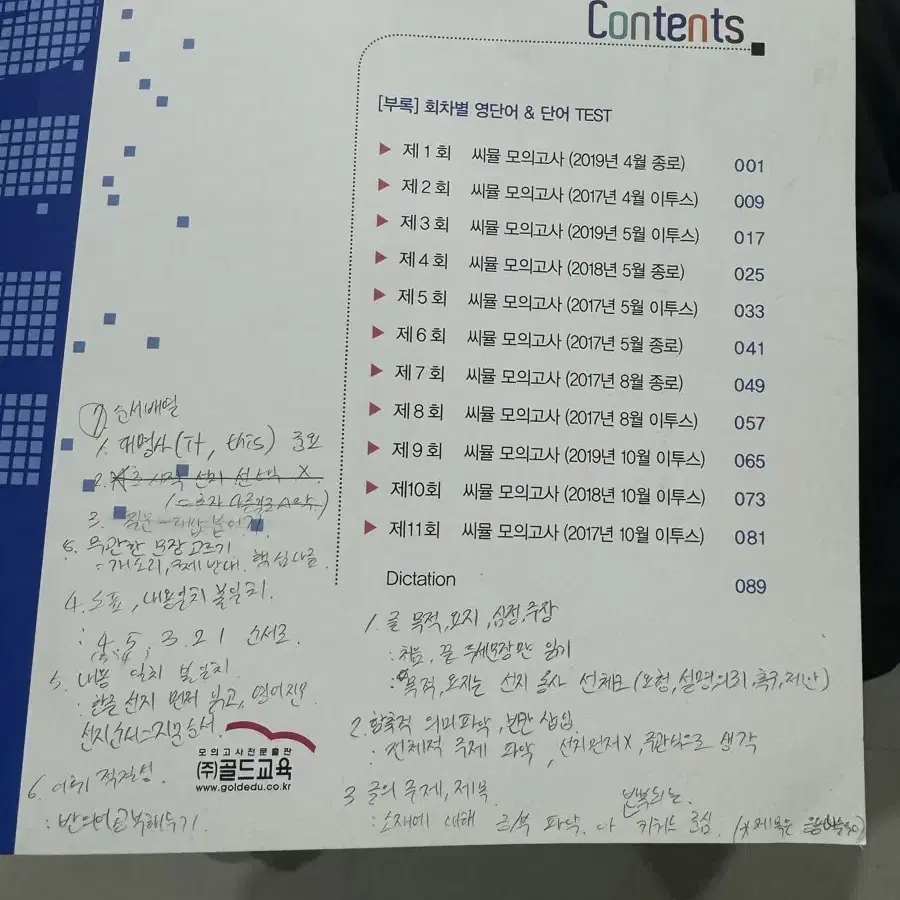 Contents
[부록] 회차별 영단어 & 단어 TEST
▶ 제 1 회 씨뮬 모의고사 (2019년 4월 종로) 001
▶ 제 2 회 씨뮬 모의고사 (2017년 4월 이투스) 009
▶ 제 3 회 씨뮬 모의고사 (2019년 5월 이투스) 017
▶ 제 4 회 씨뮬 모의고사 (2018년 5월 종로) 025
▶ 제 5 회 씨뮬 모의고사 (2017년 5월 이투스) 033
▶ 제 6 회 씨뮬 모의고사 (2017년 5월 종로) 041
▶ 제 7 회 씨뮬 모의고사 (2017년 8월 종로) 049
▶ 제 8 회 씨뮬 모의고사 (2017년 8월 이투스) 057
▶ 제 9 회 씨뮬 모의고사 (2019년 10월 이투스) 065
▶ 제10회 씨뮬 모의고사 (2018년 10월 이투스) 073
▶ 제11회 씨뮬 모의고사 (2017년 10월 이투스) 081
Dictation 089
7. 순서배열
1. 대명사(it, this) 중요
2. 시작 선지 선택 X
3. 질문-대답 붙이기
5. 무관한 문장 고르기
: 개소리, 반대, 핵심
4. 도표, 내용일치 불일치.
: 4, 5, 3. 2 1 순서로.
5. 내용 일치 불일치.
: 한글 선지 먼저 읽고, 영어지문
선지순서=지문순서.
6. 어휘 적절성.
: 반의어 공부해두기.
모의고사전문출판
(주)골드교육
www.goldedu.co.kr
1. 글 목적, 요지, 심정, 주장
: 처음, 끝 두세문장만 읽기
: 목적, 요지는 선지 동사 선체크 (요청, 설명, 의뢰, 촉구, 제안)
2. 함축적 의미파악, 빈칸 삽입
: 전체적 주제 파악, 선지먼저X, 주관식으로 생각
3 글의 주제, 제목
반복되는
: 소재에 대해 파악. 키워드 중심. (*제목은